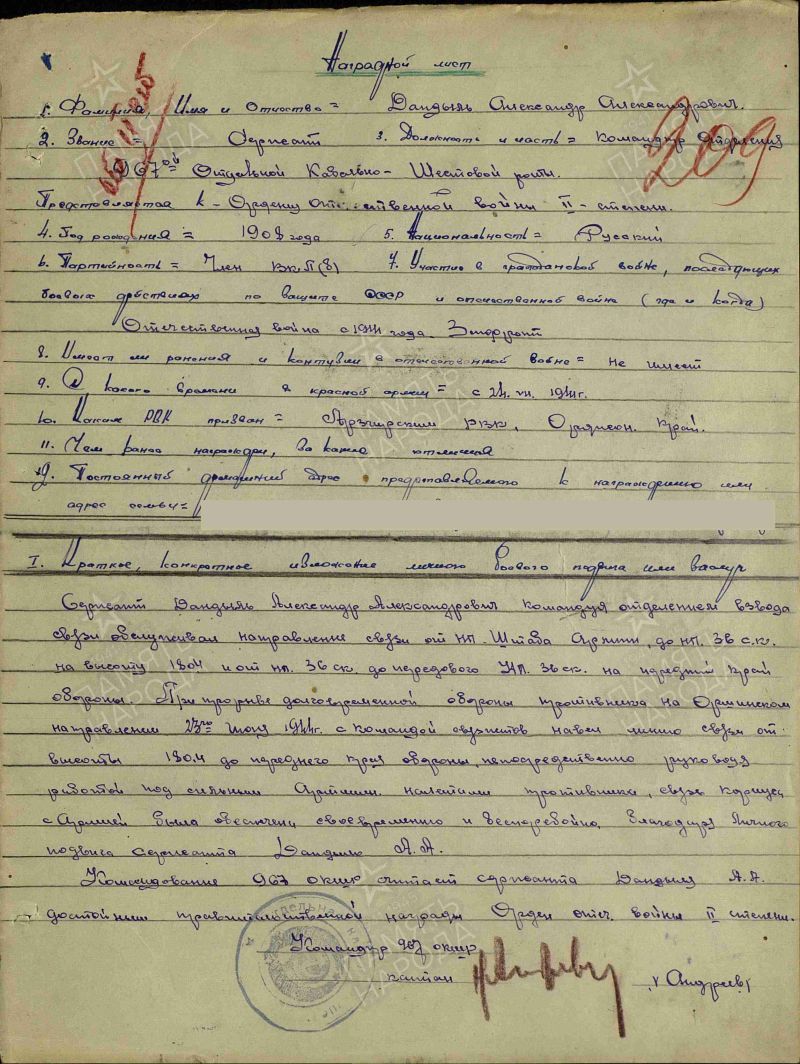 Наградной лист
1. Фамилия, Имя и Отчество = Дандыль Александр Александрович.
2. Звание = Сержант 3. Должность и часть = Командир Отделения
967ой Отдельной Кабельно-Шестовой роты.
Представляется к - Ордену Отечественной войны II-степени.
4. Год рождения = 1908 года 5. Национальность = Русский
6. Партийность = Член ВКП(б) 7. Участие в гражданской войне, последующих
боевых действиях по защите СССР и отечественной войне (где и когда)
Отечественная война с 1941 года Запфронт
8. Имеет ли ранения и контузии в отечественной войне = Не имеет
9. С какого времени в красной армии = с
10. Каким РВК призван = РВК, край.
11. Чем ранее награжден, за какие отличия
12. Постоянный домашний адрес представляемого к награждению или
адрес семьи =
I. Краткое, конкретное изложение личного боевого подвига или заслуг
Сержант Дандыль Александр Александрович командуя отделением взвода
связи обслуживал направление связи от НП. Штаба Армии, до НП. 36 с.к.
на высоту 180.4 и от НП. 36 ск. до передового НП. 36 ск. на передний край
обороны. При прорыве долговременной обороны противника на Оршинском
направлении 23го июня 1944г. с командой связистов навел линию связи от
высоты 180.4 до переднего края обороны, непосредственно руководя
работой под сильными Артилл. налетами противника, связь корпуса
с Армией была обеспечена своевременно и бесперебойно, благодаря личного
подвига сержанта Дандыль А.А.
Командование 967 окшр считает сержанта Дандыля А.А.
достойным правительственной награды Орден отеч. войны II степени.
Командир 967 окшр
капитан /Андреев/
209
ПАМЯТЬ НАРОДА